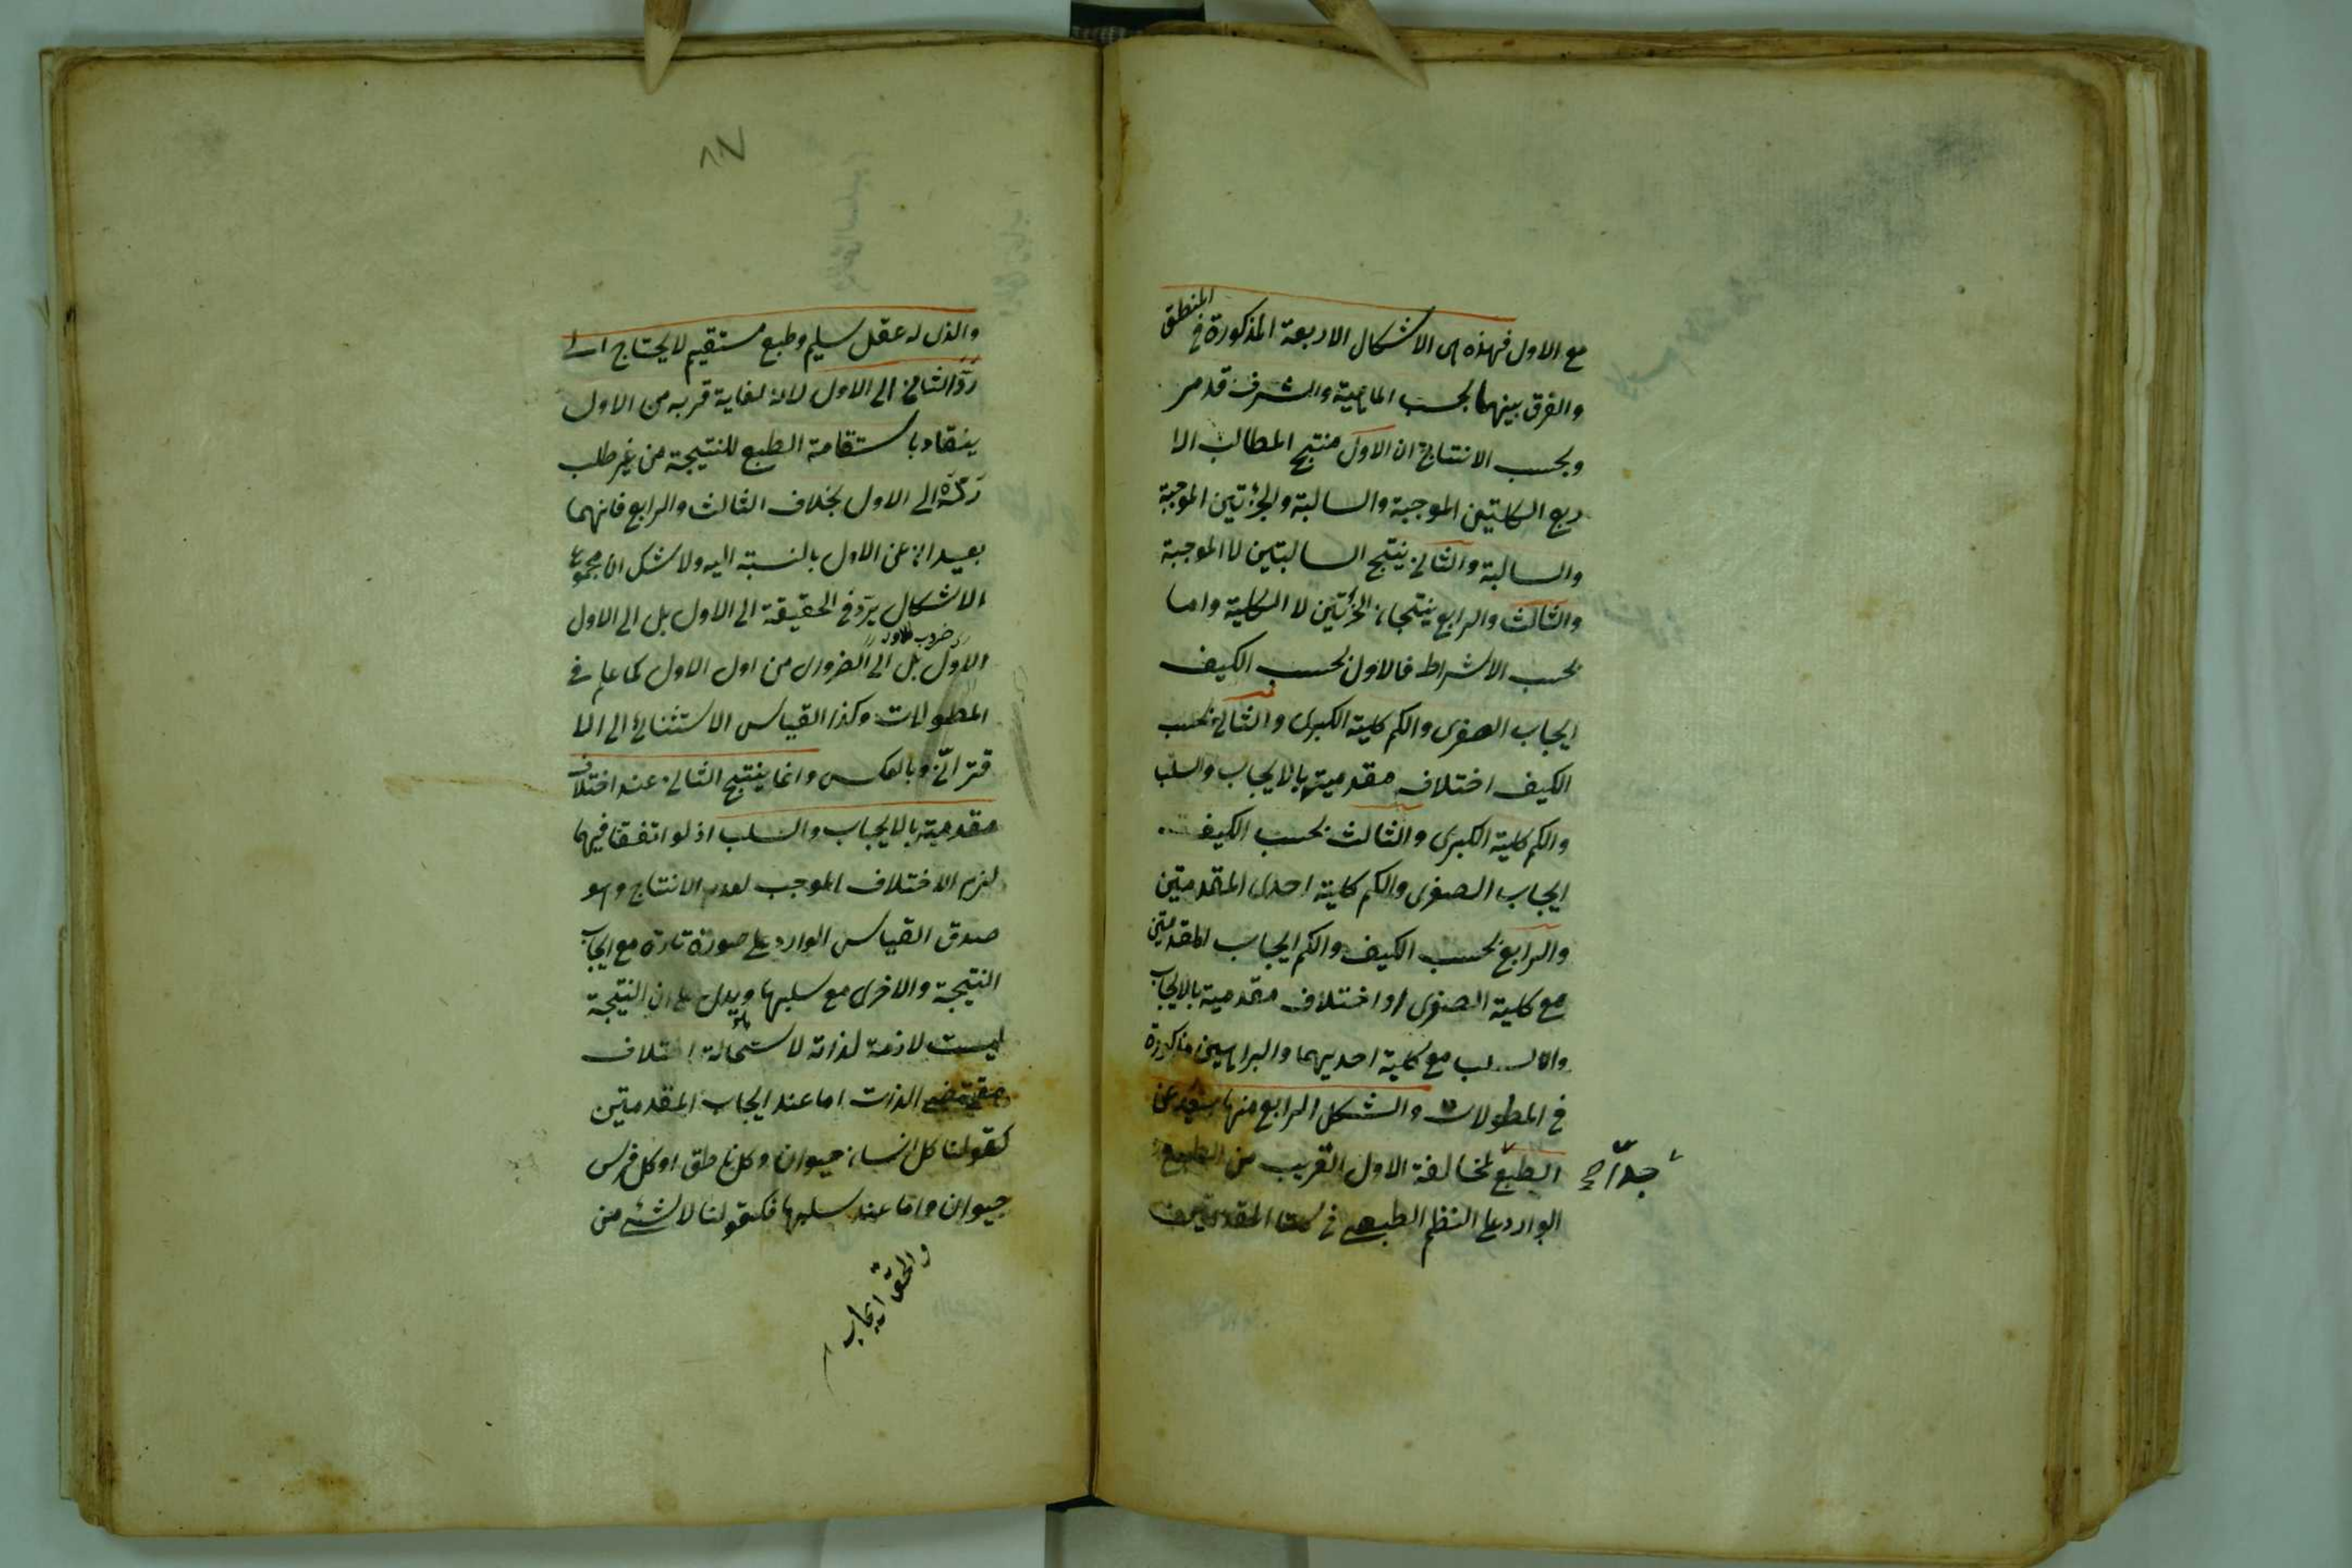 مع الاول فهذه هى الاشكال الاربعة المذكورة فى المنطق
والفرق بينهما بحسب الماهية والشرف قد مر
وبحسب الانتاج ان الاول منتج المطالب الا
ربع الكليتين الموجبة والسالبة والجزئتين الموجبة
والسالبة والثانى ينتج السالبتين لا الموجبة
والثالث والرابع ينتجان الجزئتين لا الكلية واما
بحسب الاشراط فالاول بحسب الكيف
ايجاب الصغرى والكم كلية الكبرى والثانى بحسب
الكيف اختلاف مقدميته بالايجاب والسلب
والكم كلية الكبرى والثالث بحسب الكيف
ايجاب الصغرى والكم كلية احدى المقدمتين
والرابع بحسب الكيف والكم ايجاب المقدمتين
مع كلية الصغرى او اختلاف مقدميته بالايجاب
والسلب مع كلية احديهما والبراهين مذكورة
فى المطولات والشكل الرابع منها بعيد عن
الطبع لمخالفة الاول القريب من الطبع
جدّا صح
الوارد على النظم الطبيعى فى كلتا المقدمتين
٨٧
والذى له عقل سليم وطبع مستقيم لا يحتاج الى
ردّ الثانى الى الاول لانه لغاية قربه من الاول
ينقاد باستقامة الطبع للنتيجة من غير طلب
ردّه الى الاول بخلاف الثالث والرابع فانهما
بعيدان عن الاول بالنسبة اليه ولا شك ان مجموع
الاشكال يردّ فى الحقيقة الى الاول بل الى الاول
ضروب الاول
الاول بل الى الضرورى من اول الاول كما علم فى
المطولات وكذا القياس الاستثنائى الى الا
قترانىّ وبالعكس وانما ينتج الثانى عند اختلاف
مقدميته بالايجاب والسلب اذ لو اتفقتا فيهما
لزم الاختلاف الموجب لعدم الانتاج وهو
صدق القياس الوارد على صورة تارة مع ايجاب
النتيجة والاخرى مع سلبها ويدل على ان النتيجة
ليست لازمة لذاته لاستحالة اختلاف
مقتضى الذات اما عند ايجاب المقدمتين
كقولنا كل انسان حيوان وكل ناطق او كل فرس
حيوان واما عند سلبها فكقولنا لا شئ من
والحق ايجاب